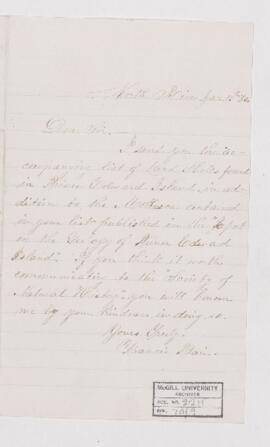 North River Jan 12th
Dear Sir.
I send you the ac-
companying list of Land Shells found
in Prince Edward Island in ad-
dition to the Mollusca contained
in your list published in the "Report
on the Geology of Prince Edward
Island". If you think it worth
communicating to the Society of
Natural History you will honour
me by your kindness in doing so.
Yours Truly
Francis Bain.
McGILL UNIVERSITY
ARCHIVES
ACC. NO. 2211
REF.